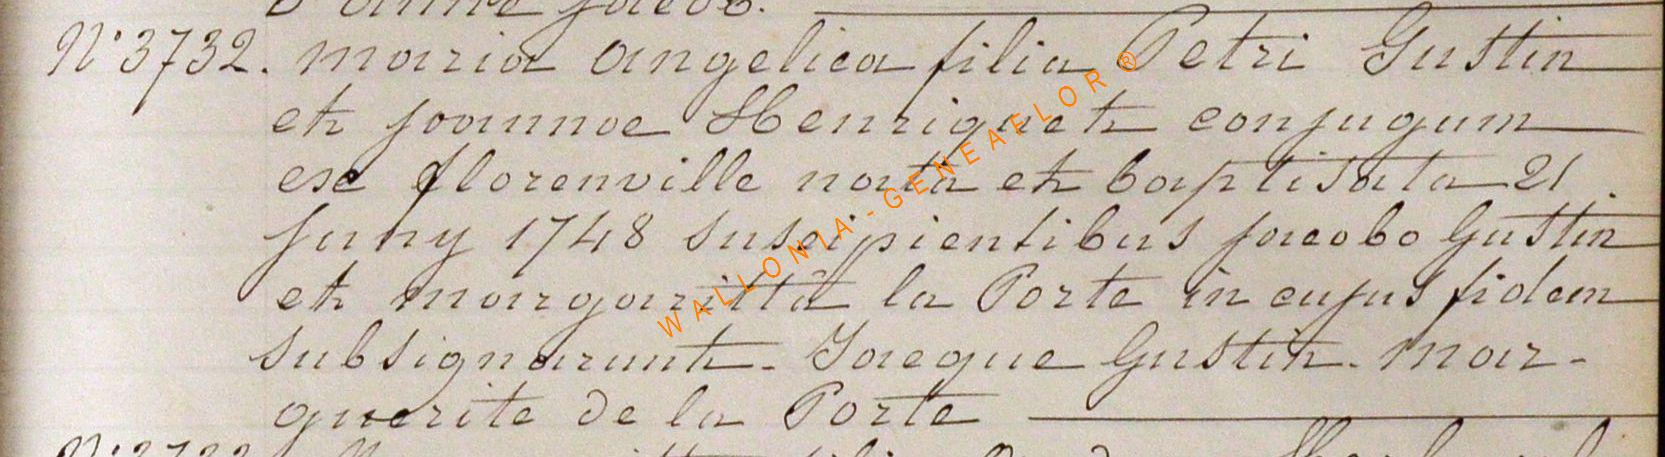 d'anne Jacob.
N° 3732. Maria Angelica filia Petri Gustin
et Joannae Henriquet conjugum
ex florenville nata et baptisata 21
Juny 1748 suscipientibus jacobo Gustin
et margarittâ la Porte in cujus fidem
subsignarunt. Jacque Gustin. Mar-
guerite de la Porte
WALLONIA-GENEAFLOR®